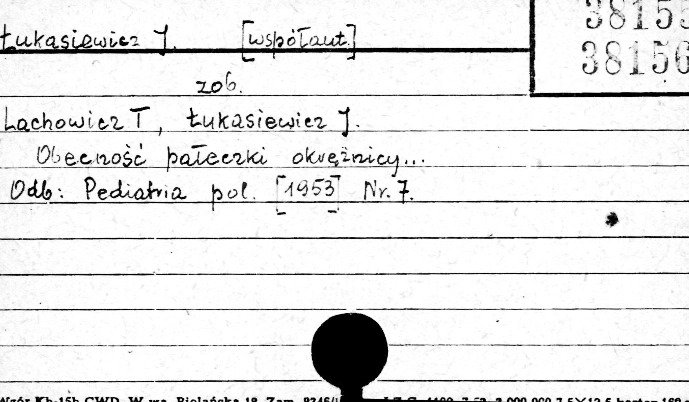 Łukasiewicz J. [współaut.]
38155
38156
zob.
Lachowicz T, Łukasiewicz J.
Obecność pałeczki okrężnicy...
Odb: Pediatria pol. [1953] Nr. 7.
Wzór Kb-15b CWD, W-wa, Bielańska 18. Zam.